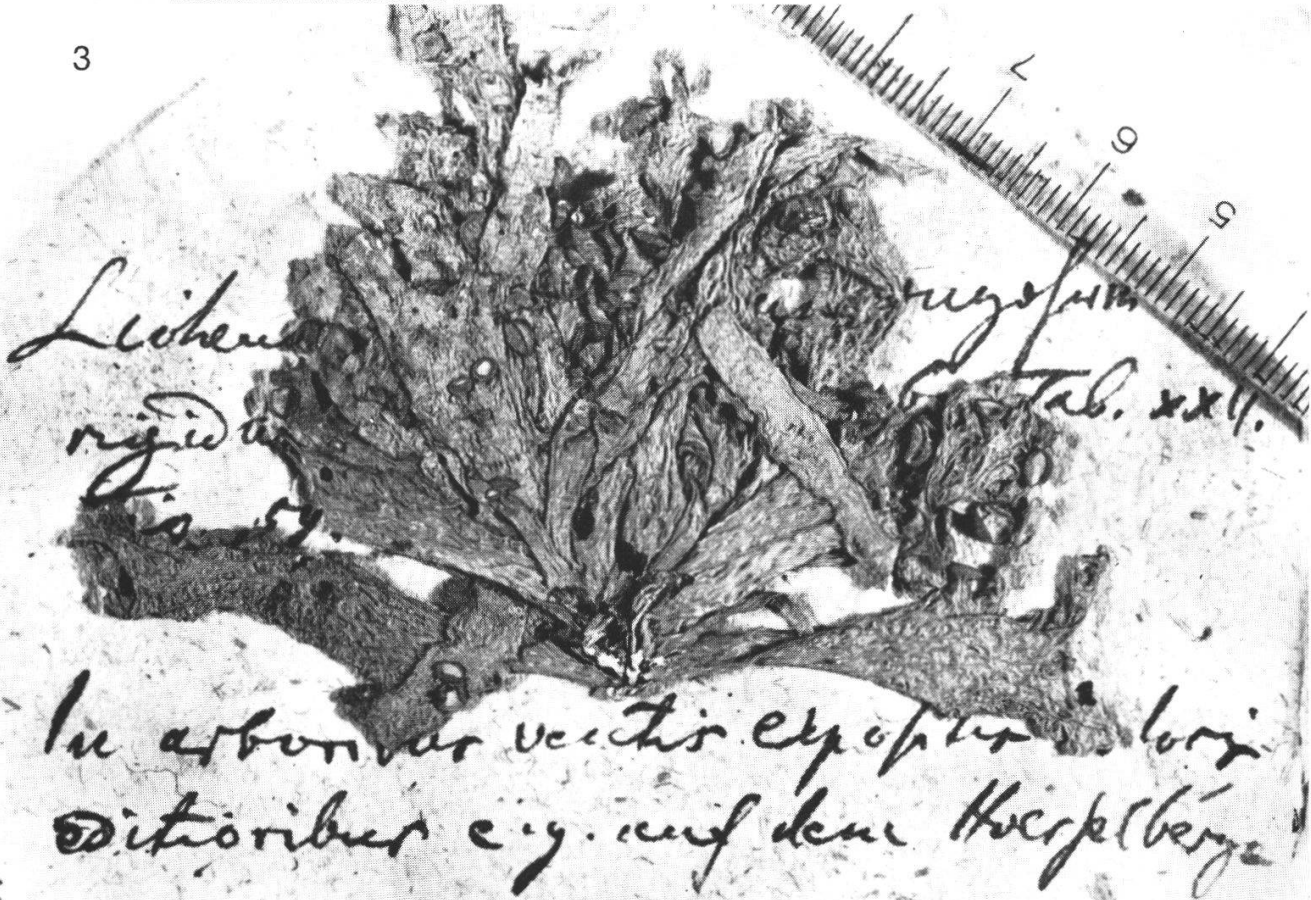 3
7
6
5
Lichen rugosum
rigidu Tab. XXII.
59.
In arboribus ventis expositis loris
editioribus e.g. auf dem Hoerselberge